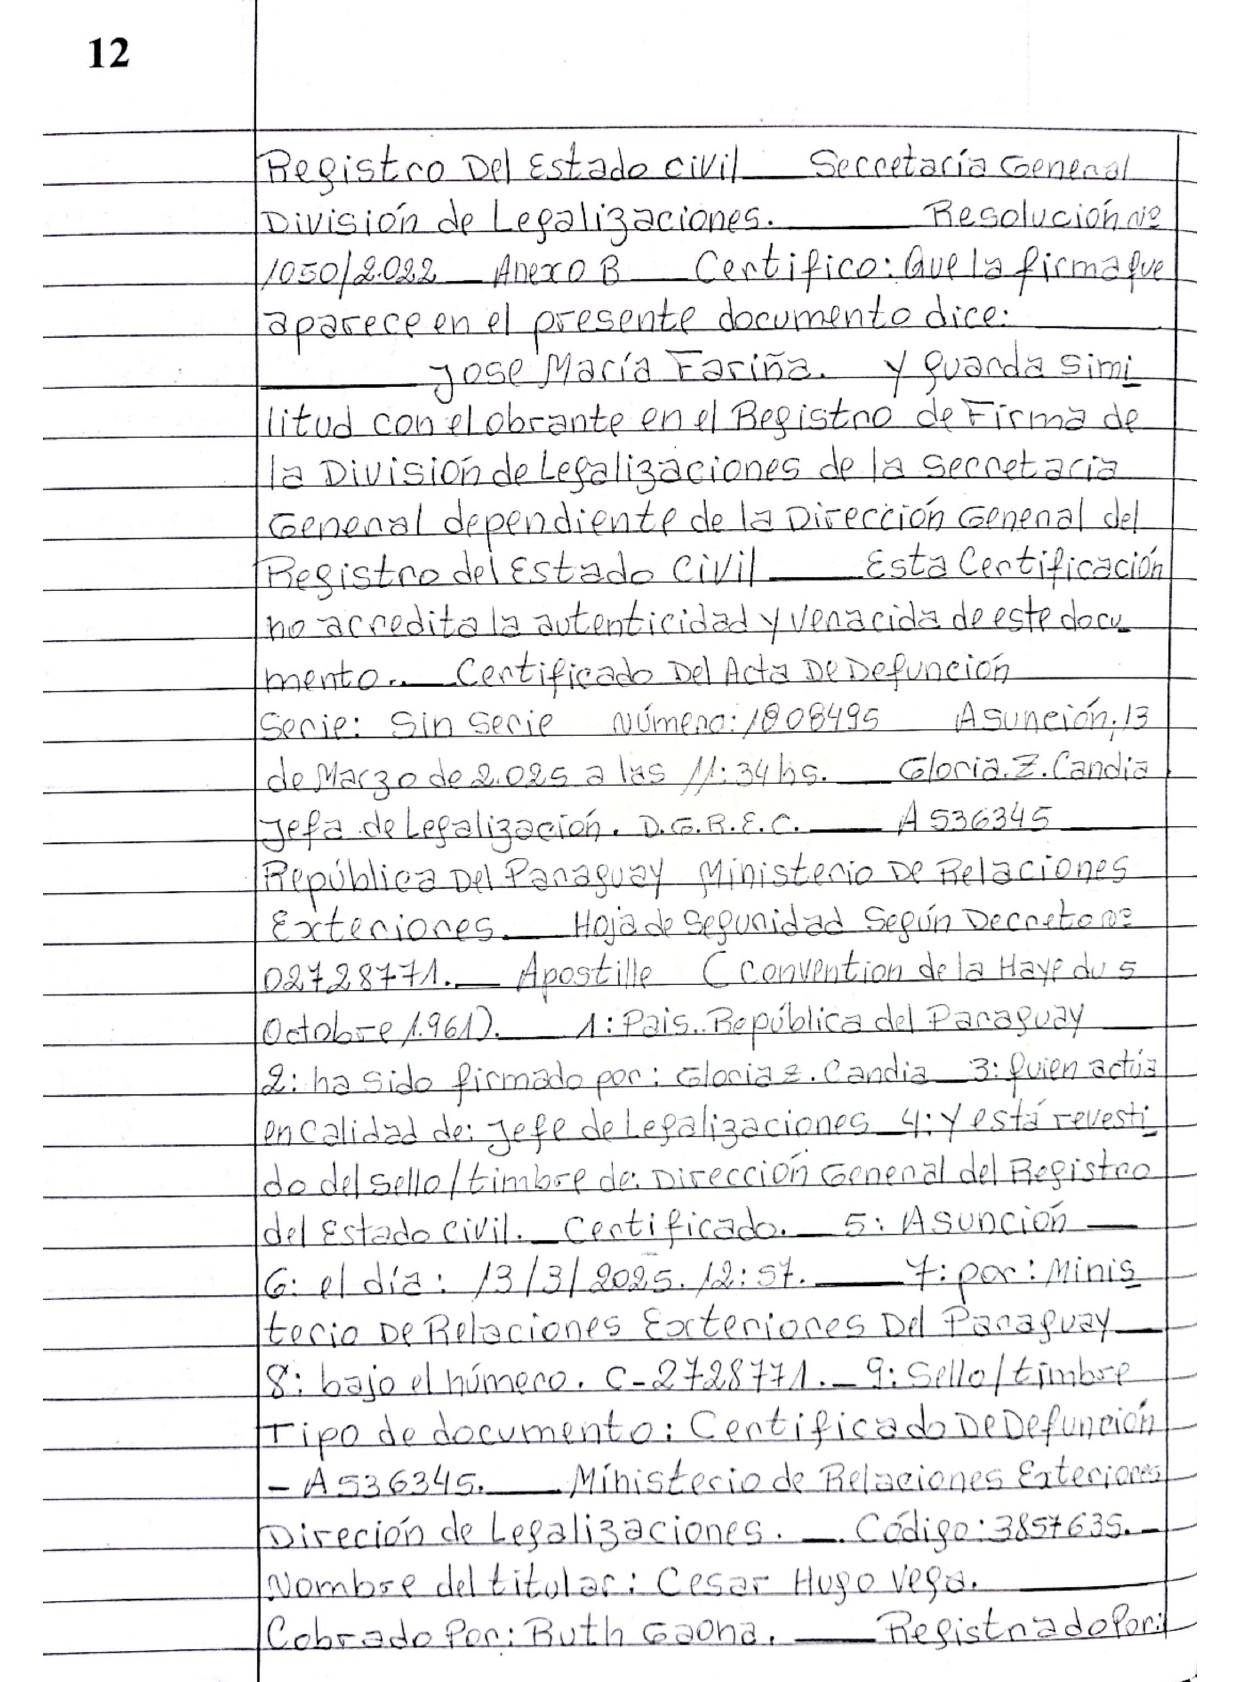 12
Registro Del Estado civil Secretaría General
División de Legalizaciones. Resolución Nº
1050/2.022 Anexo B Certifico: Que la firma que
aparece en el presente documento dice:
Jose María Fariña. y guarda simi
litud con el obrante en el Registro de Firma de
la División de Legalizaciones de la secretaria
General dependiente de la Dirección General del
Registro del Estado Civil Esta Certificación
no acredita la autenticidad y veracida de este docu
mento.. Certificado Del Acta De Defunción
Serie: Sin Serie Número: 1808495 Asunción; 13
de Marzo de 2.025 a las 11:34 hs. Gloria. Z. Candia
Jefa de Legalización. D.G.R.E.C. A 536345
República Del Paraguay Ministerio De Relaciones
Exteriores. Hoja de Seguridad Según Decreto nº
02728771. Apostille (Convention de la Haye du 5
Octobre 1.961). 1: Pais.. República del Paraguay
2: ha sido firmado por: Gloria z. Candia 3: quien actúa
en calidad de: Jefe de Legalizaciones 4: y está revesti
do del sello/timbre de: Dirección General del Registro
del Estado civil. Certificado. 5: Asunción
6: el día: 13/3/2025. 12:57. 7: por: Minis
terio De Relaciones Exteriores Del Paraguay
8: bajo el número. C-2728771. 9: Sello/timbre
Tipo de documento: Certificado De Defunción
- A536345. Ministerio de Relaciones Exteriores
Direción de Legalizaciones. Código: 3857635.
Nombre del titular: Cesar Hugo Vega.
Cobrado Por: Ruth Gaona. Registrado Por: